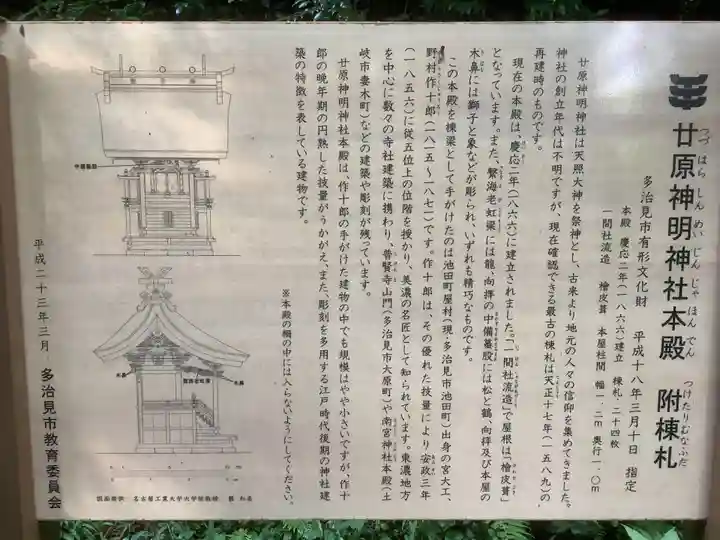 廿原神明神社本殿 附棟札
つづはらしんめいじんじゃほんでん つけたりむなふだ
多治見市有形文化財 平成十八年三月十日 指定
本殿 慶応二年(一八六六)建立 棟札・二十四枚
一間社流造 檜皮葺 本屋柱間 幅一・二m 奥行一・〇m
廿原神明神社は天照大神を祭神とし、古来より地元の人々の信仰を集めてきました。
神社の創立年代は不明ですが、現在確認できる最古の棟札は天正十七年(一五八九)の、
再建時のものです。
現在の本殿は、慶応二年(一八六六)に建立されました。「一間社流造」で屋根は「檜皮葺」
となっています。また、繋海老虹梁には龍、向拝の中備蟇股には松と鶴、向拝及び本屋の
木鼻には獅子と象などが彫られ、いずれも精巧なものです。
この本殿を棟梁として手がけたのは池田町屋村(現・多治見市池田町)出身の宮大工、
野村作十郎(一八一五〜一八七一)です。作十郎は、その優れた技量により安政三年
(一八五六)に従五位上の位階を授かり、美濃の名匠として知られています。東濃地方
を中心に数々の寺社建築に携わり、普賢寺山門(多治見市大原町)や南宮神社本殿(土
岐市妻木町)などの建築や彫刻が残っています。
廿原神明神社本殿は、作十郎の手がけた建物の中でも規模はやや小さいですが、作十
郎の晩年期の円熟した技量がうかがえ、また、彫刻を多用する江戸時代後期の神社建
築の特徴を表している建物です。
※本殿の柵の中には入らないようにしてください。
平成二十三年三月 多治見市教育委員会
中備蟇股
木鼻
繋海老虹梁
木鼻
図面提供 名古屋工業大学大学院教授